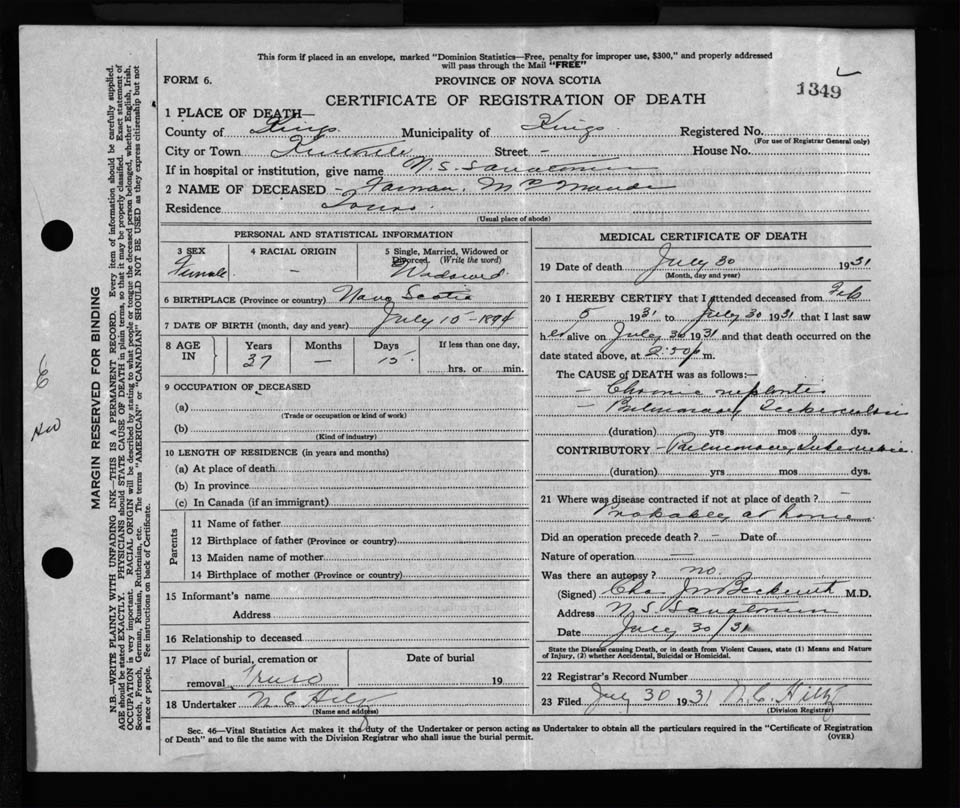 This form if placed in an envelope, marked "Dominion Statistics—Free, penalty for improper use, $300," and properly addressed
will pass through the Mail "FREE"
FORM 6.
PROVINCE OF NOVA SCOTIA
1349
CERTIFICATE OF REGISTRATION OF DEATH
1 PLACE OF DEATH—
County of Kings Municipality of Kings Registered No.
(For use of Registrar General only)
City or Town Kentville Street - House No.
If in hospital or institution, give name N. S. Sanatorium
2 NAME OF DECEASED
Residence
(Usual place of abode)
PERSONAL AND STATISTICAL INFORMATION
3 SEX
Female
4 RACIAL ORIGIN
—
5 Single, Married, Widowed or
Divorced. (Write the word)
Widowed
6 BIRTHPLACE (Province or country) Nova Scotia
7 DATE OF BIRTH (month, day and year) July 15 - 1894
8 AGE IN
Years
37
Months
—
Days
15
If less than one day,
hrs. or min.
9 OCCUPATION OF DECEASED
(a)
(Trade or occupation or kind of work)
(b)
(Kind of industry)
10 LENGTH OF RESIDENCE (in years and months)
(a) At place of death
(b) In province
(c) In Canada (if an immigrant)
Parents
11 Name of father
12 Birthplace of father (Province or country)
13 Maiden name of mother
14 Birthplace of mother (Province or country)
15 Informant's name
Address
16 Relationship to deceased
17 Place of burial, cremation or
removal Truro
Date of burial
19
18 Undertaker N C Hiltz
(Name and address)
MEDICAL CERTIFICATE OF DEATH
19 Date of death July 30 1931
(Month, day and year)
20 I HEREBY CERTIFY that I attended deceased from Feb
5 1931 to July 30 1931 that I last saw
her alive on July 30 1931 and that death occurred on the
date stated above, at 2:50 p m.
The CAUSE of DEATH was as follows:—
- Chronic nephritis
- Pulmonary Tuberculosis
(duration) yrs mos dys.
CONTRIBUTORY - Pulmonary Tuberculosis
(duration) yrs. mos. dys.
21 Where was disease contracted if not at place of death? -
Probably at home
Did an operation precede death? - Date of
Nature of operation —
Was there an autopsy? no.
(Signed) Chas J W Beckwith M.D.
Address N S Sanatorium
Date July 30/31
State the Disease causing Death, or in death from Violent Causes, state (1) Means and Nature
of Injury, (2) whether Accidental, Suicidal or Homicidal.
22 Registrar's Record Number
23 Filed July 30 1931 N. C. Hiltz
(Division Registrar)
Sec. 46—Vital Statistics Act makes it the duty of the Undertaker or person acting as Undertaker to obtain all the particulars required in the "Certificate of Registration
of Death" and to file the same with the Division Registrar who shall issue the burial permit.
(OVER)
MARGIN RESERVED FOR BINDING
N.B.—WRITE PLAINLY WITH UNFADING INK—THIS IS A PERMANENT RECORD. Every item of information should be carefully supplied.
AGE should be stated EXACTLY. PHYSICIANS should STATE CAUSE OF DEATH in plain terms, so that it may be properly classified. Exact statement of
OCCUPATION is very important. RACIAL ORIGIN will be described by stating to what people or tongue the deceased person belonged, whether English, Irish,
Scotch, French, German, Russian, Ruthenian, etc. The terms "AMERICAN" or "CANADIAN" SHOULD NOT BE USED as they express citizenship but not
a race or people. See instructions on back of Certificate.